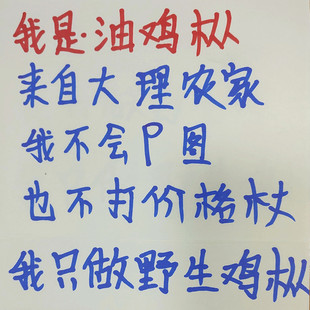 我是·油鸡枞
来自大理农家
我不会P图
也不打价格杖
我只做野生鸡枞